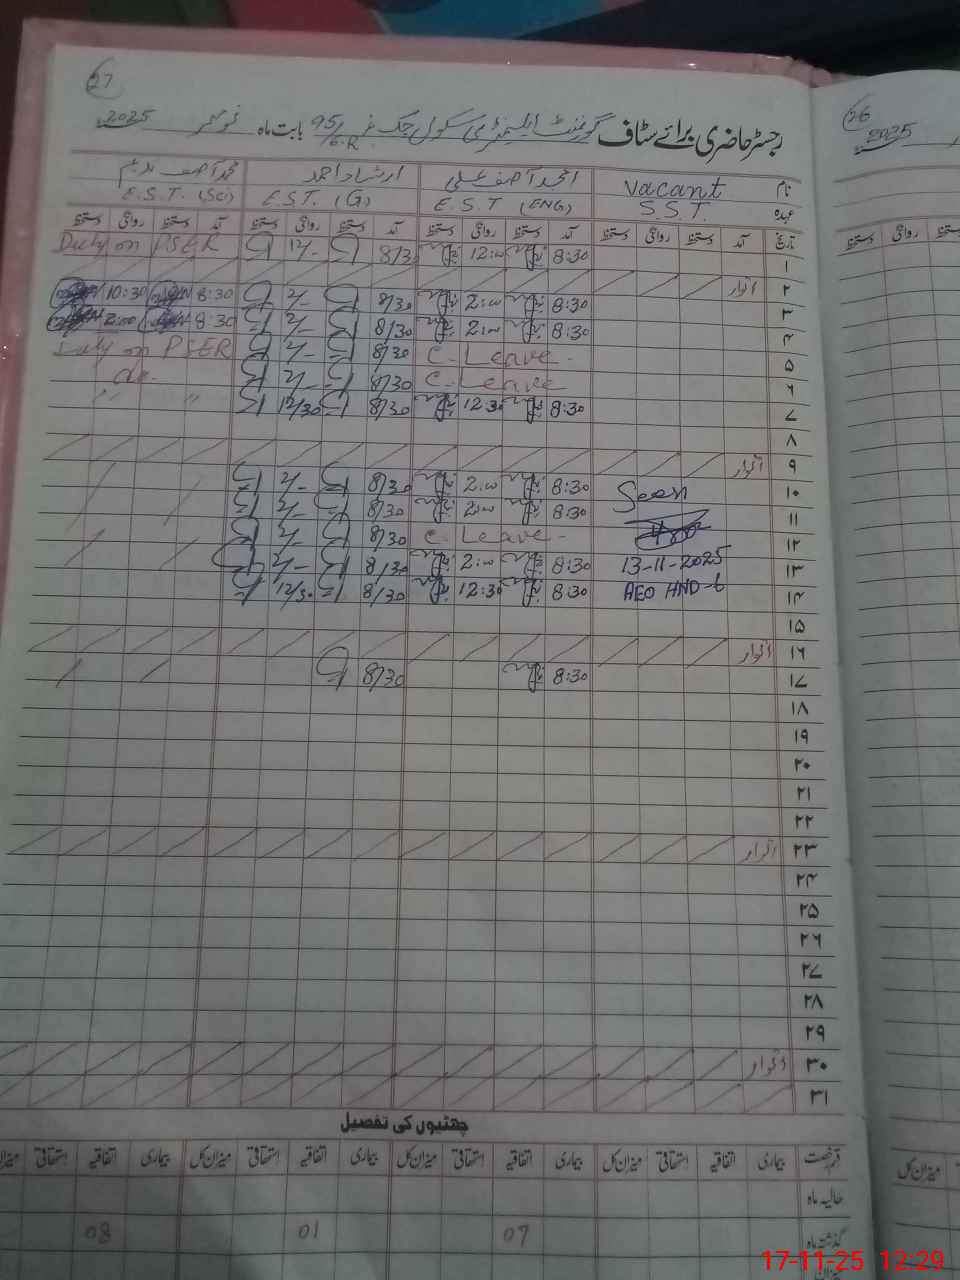 27
رجسٹر حاضری برائے سٹاف گورنمنٹ ایلیمنٹری سکول چک نمبر 95/6.R بابت ماہ نومبر 2025
نام Vacant امجد آصف علی ارشاد احمد محمد آصف ندیم
عہدہ S.S.T. E.S.T (ENG) E.S.T. (G) E.S.T. (Sci)
تاریخ آمد دستخط روانگی دستخط آمد دستخط روانگی دستخط آمد دستخط روانگی دستخط آمد دستخط روانگی دستخط
۱ 8:30 12:00 8/30 12/- Duty on PSER
۲ اتوار
۳ 8:30 2:00 8/30 2/- 8:30 10:30
۴ 8:30 2:00 8/30 2/- 8:30 2:00
۵ C-Leave- 8/30 2/- Duty on PSER
۶ C-Leave 8/30 2/- do-
۷ 8:30 12:30 8/30 12/30 " "
۸
۹ اتوار
۱۰ Seen 8:30 2:00 8/30 2/-
۱۱ 8:30 2:00 8/30 2/-
۱۲ C-Leave- 8/30 2/-
۱۳ 13-11-2025 8:30 2:00 8/30 2/-
۱۴ AEO HND-6 8:30 12:30 8/30 12/30
۱۵
۱۶ اتوار
۱۷ 8:30 8/30
۱۸
۱۹
۲۰
۲۱
۲۲
۲۳ اتوار
۲۴
۲۵
۲۶
۲۷
۲۸
۲۹
۳۰ اتوار
۳۱
چھٹیوں کی تفصیل
قسم رخصت بیماری اتفاقیہ استحقاقی میزان کل بیماری اتفاقیہ استحقاقی میزان کل بیماری اتفاقیہ استحقاقی میزان کل بیماری اتفاقیہ استحقاقی میزان
حالیہ ماہ
گذشتہ ماہ 07 01 08
میزان
26
2025
میزان کل
17-11-25 12:29